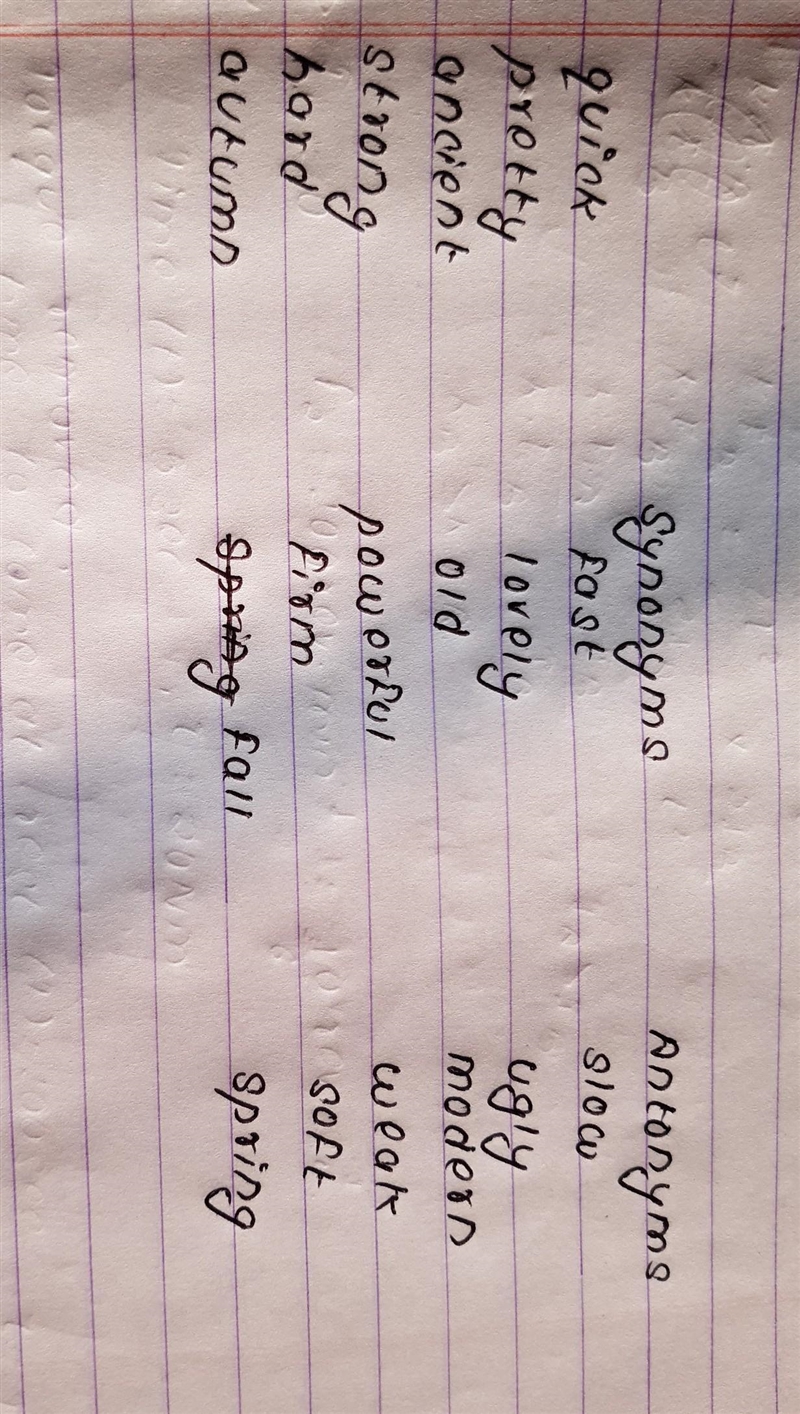 Synonyms Antonyms
quick fast slow
pretty lovely ugly
ancient old modern
strong powerful weak
hard firm soft
autumn Spring fall Spring